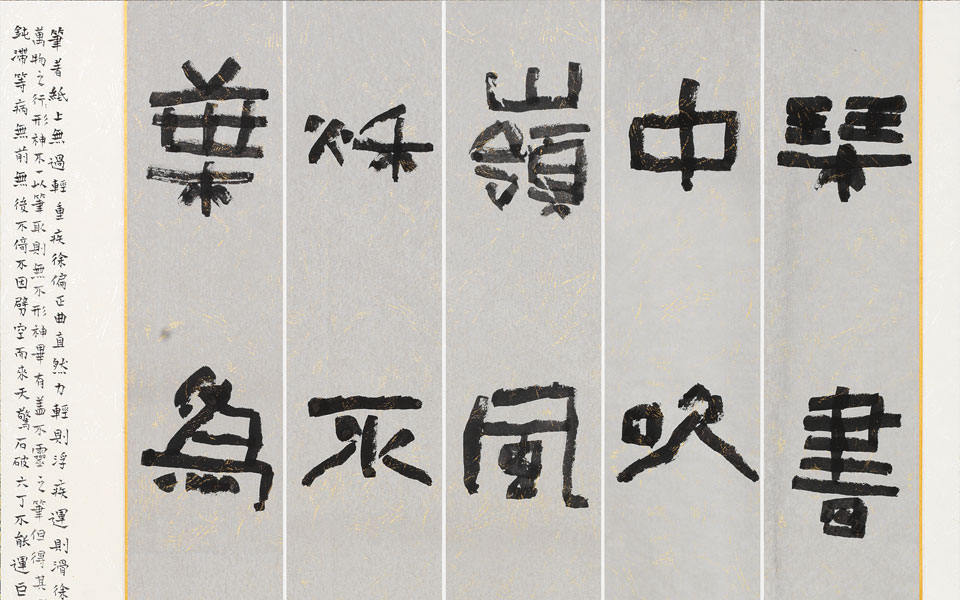 琴書
中吹
嶺風
秌灭
為
筆着紙上無過輕重疾徐偏正曲直然力輕則浮疾運則滑徐
萬物之行形神不一以筆取則無不形神畢有蓋不靈之筆但得其
鈍滯等病無前無後不倚不因劈空而來天驚石破六丁不能運巨